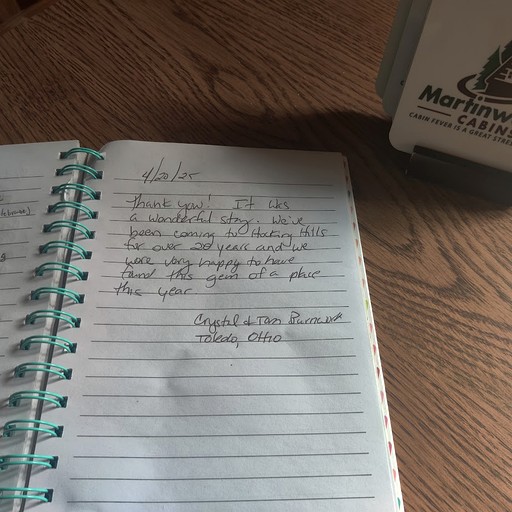 4/20/25
Thank you! It was
a wonderful stay. We've
been coming to Hocking Hills
for over 20 years and we
were very happy to have
found this gem of a place
this year
Crystal & Tom
Toledo, Ohio
Martinw
CABINS
CABIN FEVER IS A GREAT